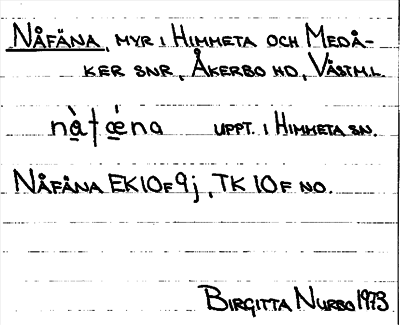 NÅFÄNA, MYR I HIMMETA OCH MEDÅ-
KER SNR, ÅKERBO HD, VÄSTML.
nà̱fǽ̱na UPPT. I HIMMETA SN.
NÅFÄNA EK 10F 9j, TK 10F NO.
BIRGITTA NURBO 1973